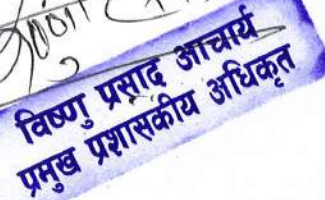 विष्णु प्रसाद आचार्य
प्रमुख प्रशासकीय अधिकृत